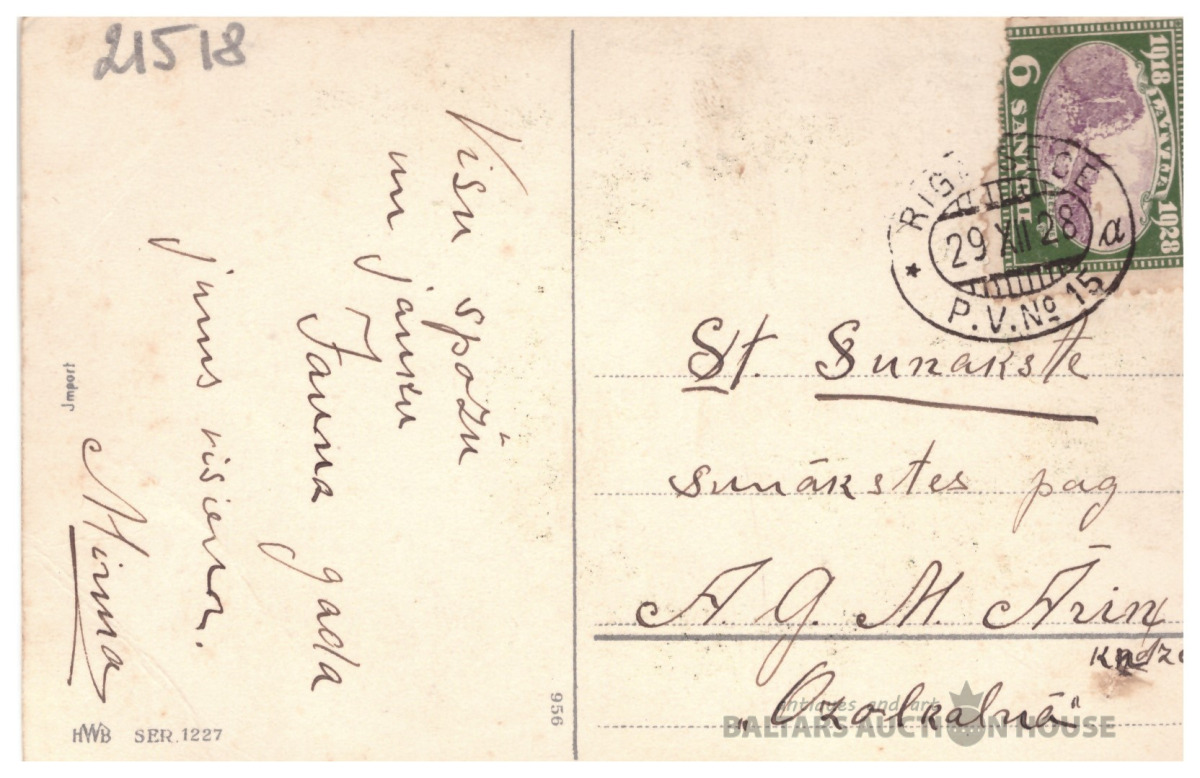 21518
Visu spožu
un jauku
Jauna gada
jums visiem.
Minna
Jmport
HWB SER. 1227
956
1918 LATVIJA 1928
6 SANTIMI
RIGA
29 XII 28
a
P.V.Nº 15
St. Sunakste
sunākstes pag
A. G. M. Ārin
„Ozolkalnā"
antiques and art
BALTARS AUCTION HOUSE